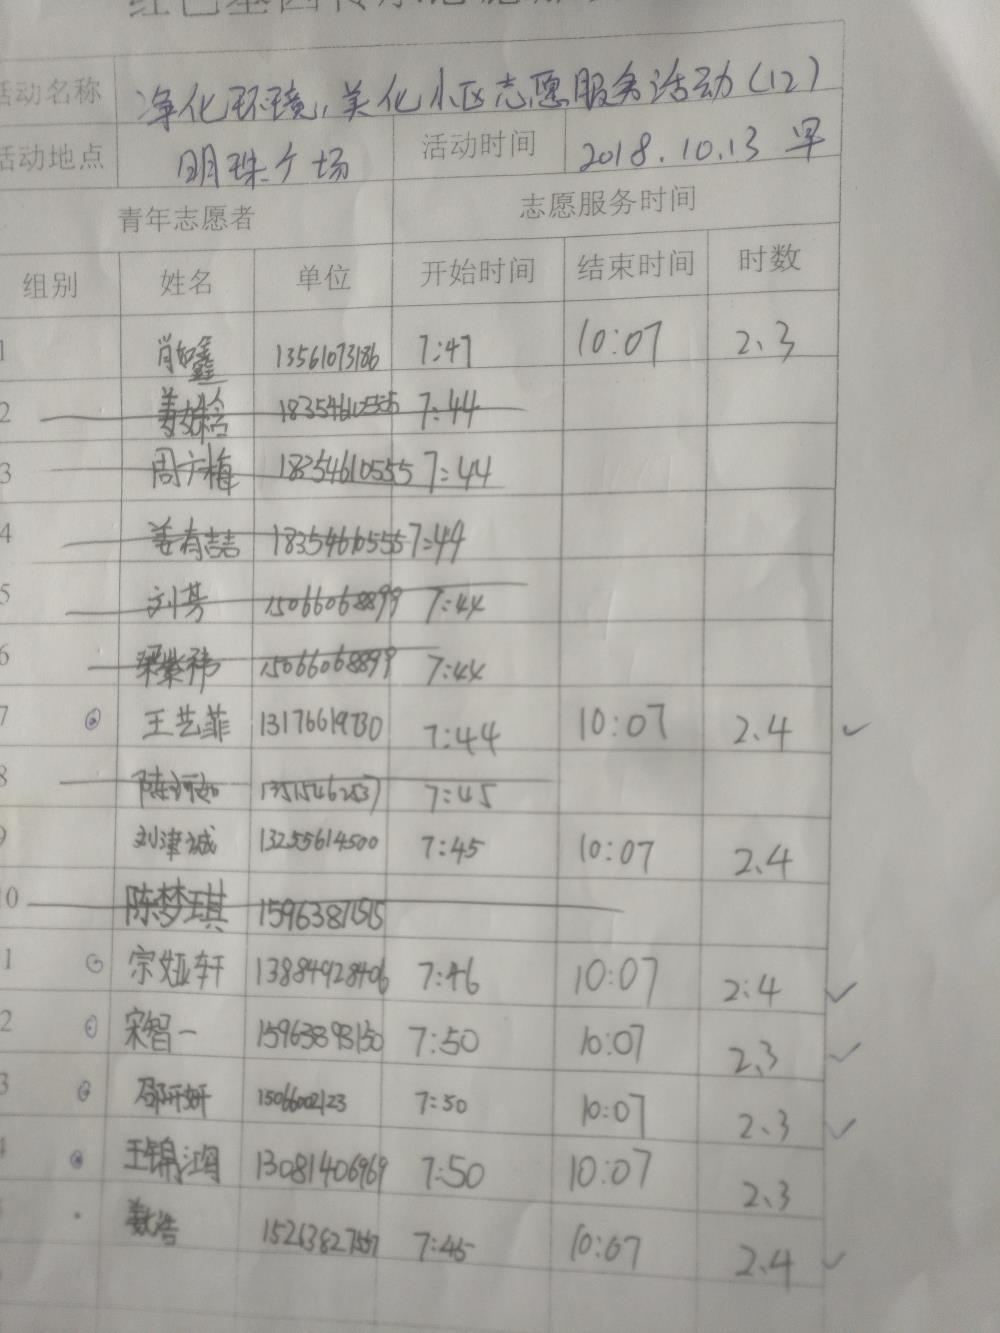 活动名称 净化环境,美化小区志愿服务活动(12)
活动地点 明珠广场 活动时间 2018.10.13 早
青年志愿者 志愿服务时间
组别 姓名 单位 开始时间 结束时间 时数
1 肖如鑫 13561073186 7:47 10:07 2、3
2 18354610555 7:44
3 周广梅 18354610555 7:44
4 姜有喆 18354610555 7:44
5 刘芳 15066068899 7:44
6 梁紫祎 15066068899 7:44
7 王艺菲 13176619730 7:44 10:07 2、4
8 13515462537 7:45
9 刘津诚 13255614500 7:45 10:07 2、4
10 陈梦琪 15963871515
1 宗娅轩 13884928406 7:46 10:07 2:4
2 宋智一 15963893150 7:50 10:07 2、3
3 邵开妍 15066002123 7:50 10:07 2、3
4 王锦鸿 13081406969 7:50 10:07 2、3
7:45 10:07 2、4